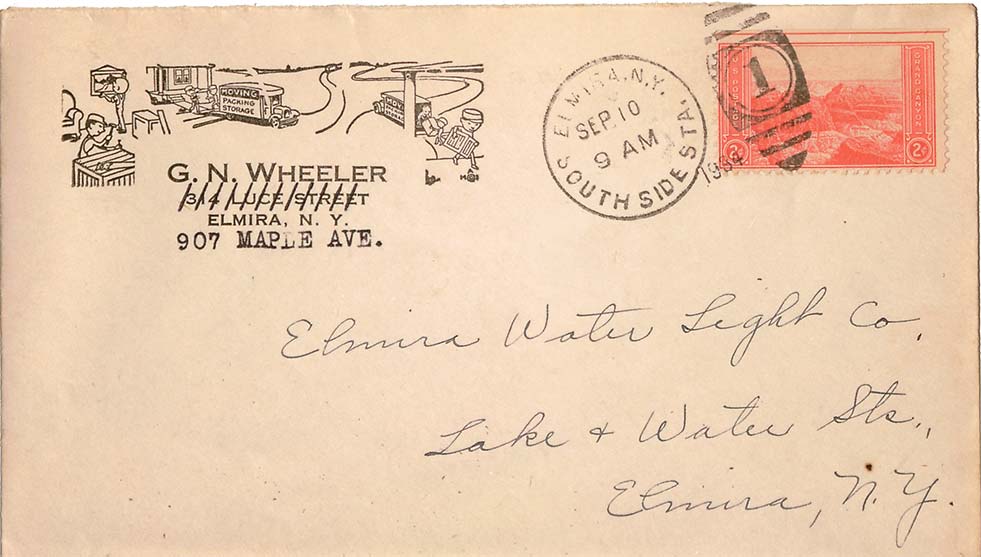 MOVING
PACKING
STORAGE
MOVING
G. N. WHEELER
314 LUCE STREET
ELMIRA, N. Y.
907 MAPLE AVE.
ELMIRA, N.Y.
SEP 10
9 AM
SOUTH SIDE STA.
1934
1
U.S. POSTAGE
GRAND CANYON
2¢
2¢
Elmira Water Light Co.
Lake & Water Sts.,
Elmira, N.Y.